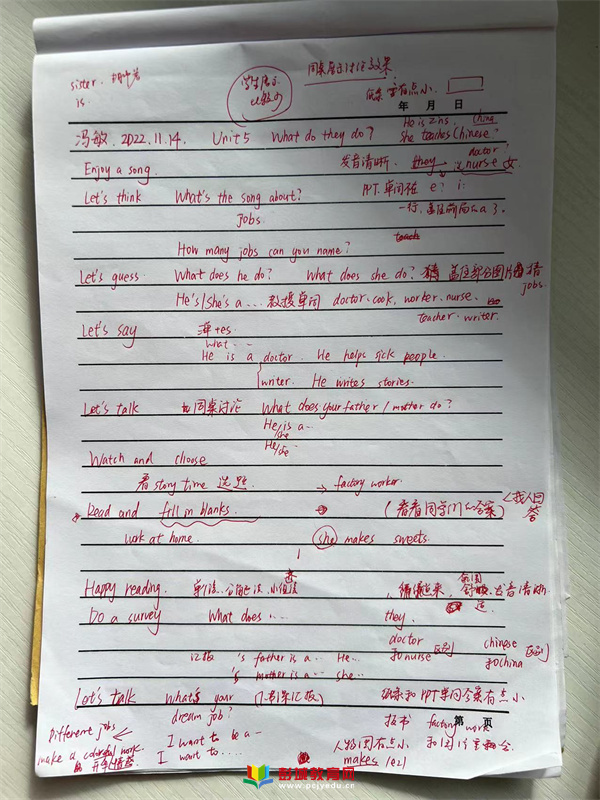 sister.
is.
同桌展示讨论效果
学生展示
比较少
板条字有点小.
年 月 日
He is zns. china.
冯敏. 2022.11.14. Unit 5 What do they do? She teaches Chinese
doctor?
Enjoy a song. 发音清晰. they nurse 女
Let's think What's the song about? PPT. 单词在 e? i:
jobs. 一行,
teach
How many jobs can you name?
Let's guess. What does he do? What does she do? 猜 盖住部分图片猜
jobs.
He's/She's a... 教授单词 doctor、cook, worker, nurse.
teacher. writer.
Let's say 薄+es.
what...
He is a doctor. He helps sick people.
writer. He writes stories.
Let's talk 同桌讨论 What does your father / mother do?
He/she is a...
He/she...
Watch and choose
看 story time 选题 → factory worker.
Read and fill in blanks. (看看同学们的答案) <找人回答
work at home. she makes sweets.
Happy reading. 发音清晰.
Do a survey What does .... they.
doctor 和 nurse 区别 chinese 和 china 区别
汇报 's father is a... He...
's mother is a... she...
Let's talk What's your dream job? 板条和PPT单词答案有点小
I want to be a...
I want to....
Different jobs
make a colorful work.
板书 factory work
第 页
人物图有点小
makes
彭城教育网
www.pcjyedu.cn